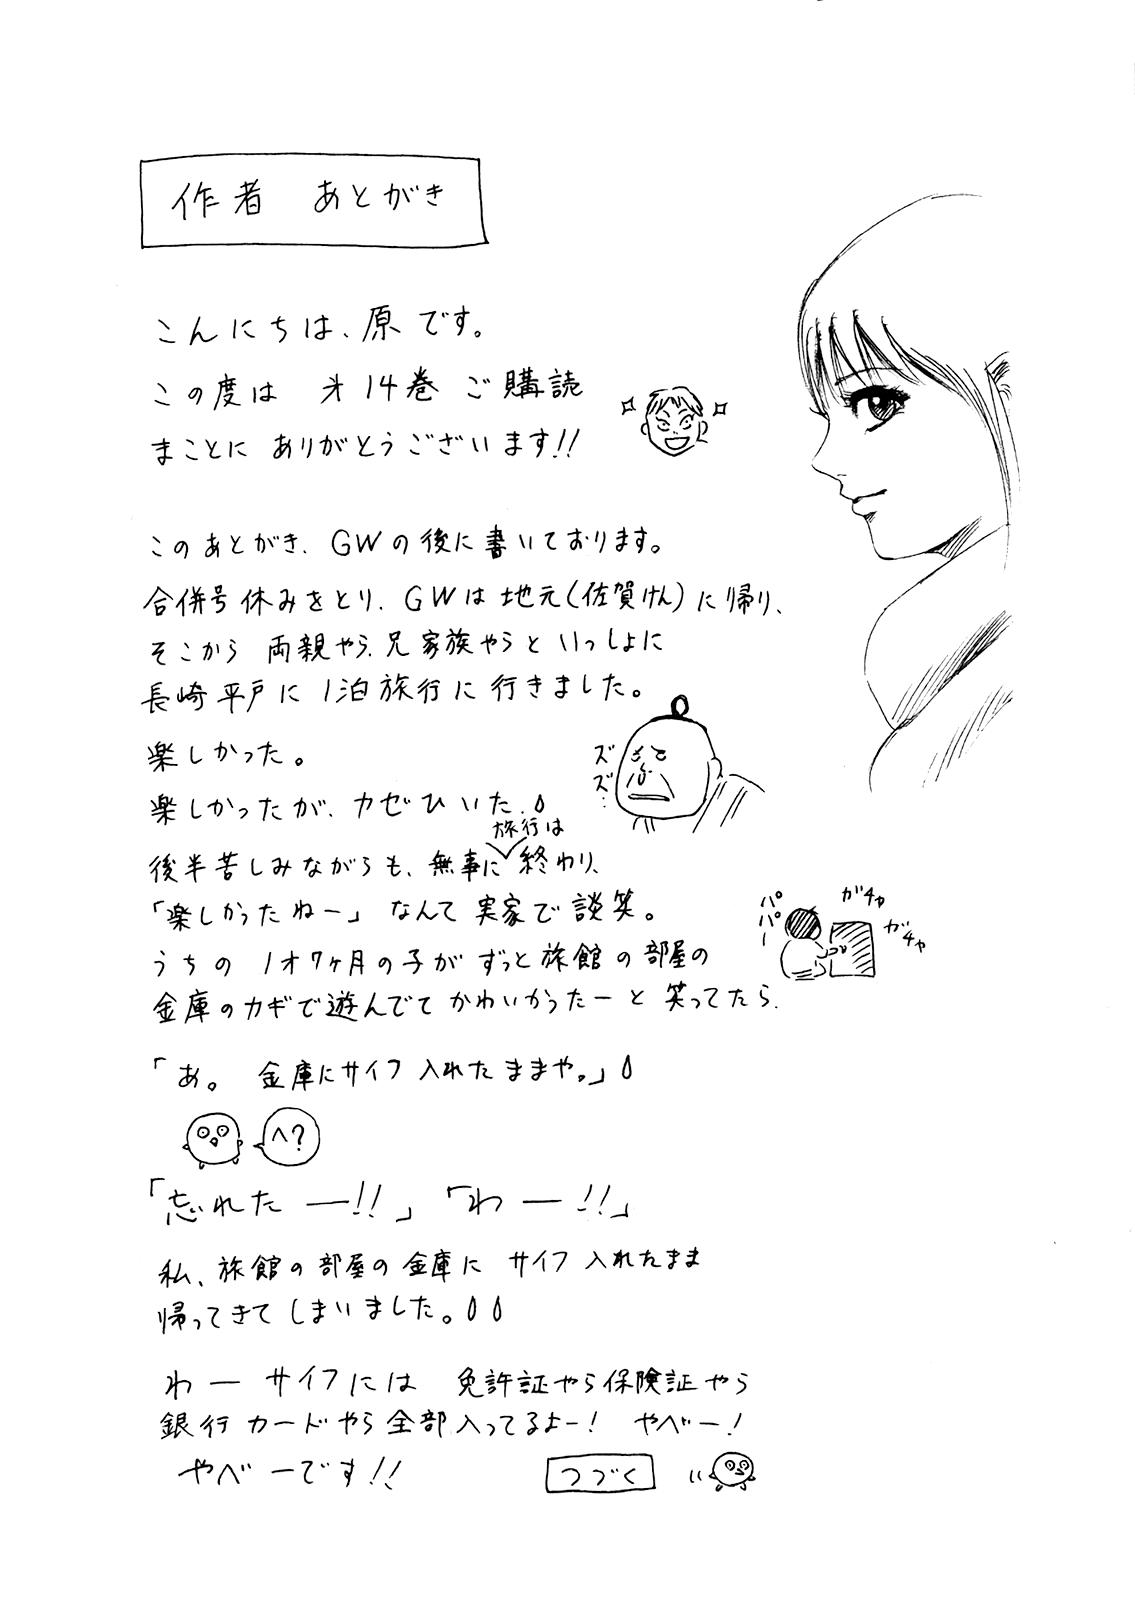 作者 あとがき
こんにちは、原です。
この度は 才14巻 ご購読
まことに ありがとうございます!!
このあとがき、GWの後に書いております。
合併号休みをとり、GWは地元(佐賀けん)に帰り、
そこから 両親やら、兄家族やらと いっしょに
長崎平戸に 1泊旅行に 行きました。
楽しかった。
ズズ…
楽しかったが、カゼひいた。
旅行は
後半苦しみながらも、無事に終わり、
「楽しかったねー」なんて 実家で談笑。
パパー
ガチャ
ガチャ
うちの 1才7ヶ月の子が ずっと旅館の部屋の
金庫のカギで遊んでて かわいかったーと 笑ってたら、
「あ。 金庫にサイフ入れたままや。」
へ?
「忘れたー!!」「わー!!」
私、旅館の部屋の金庫に サイフ入れたまま
帰ってきてしまいました。
わー サイフには 免許証やら保険証やら
銀行カードやら全部入ってるよー! やべー!
やべーです!!
つづく